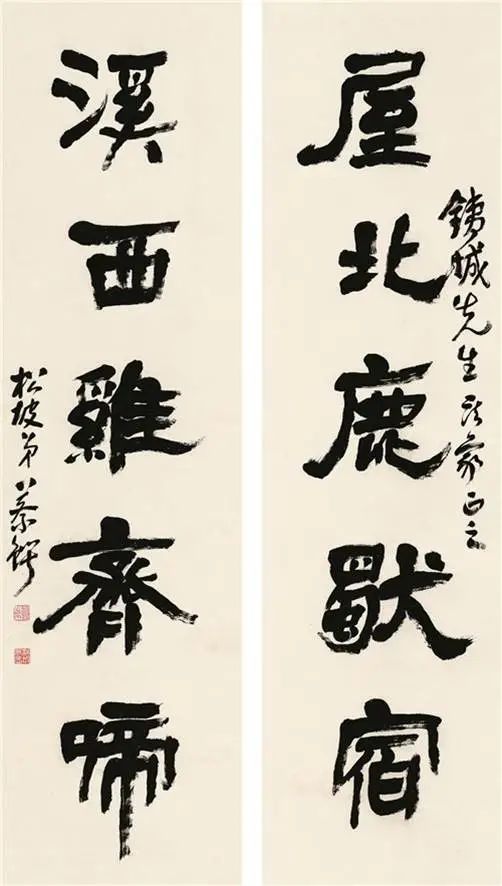 屋北鹿獨宿
銕城先生家正之
溪西雞齊啼
松坡弟蔡鍔